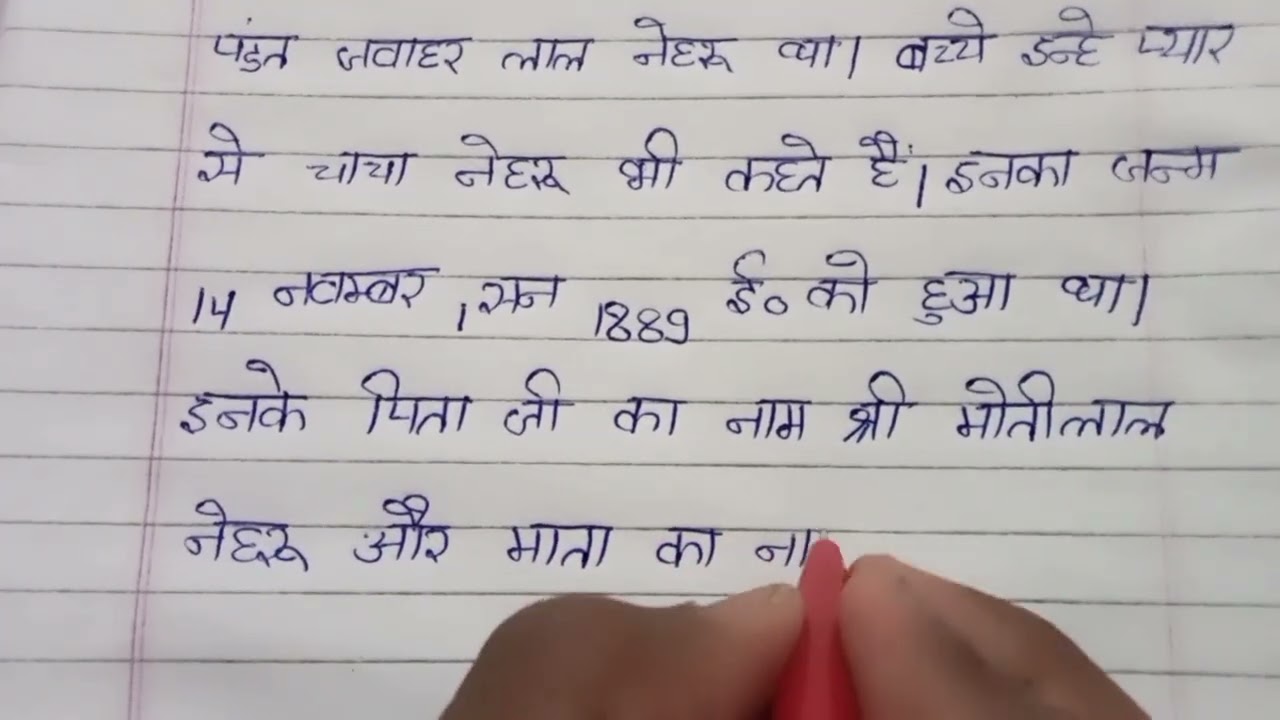 पंडत जवाहर लाल नेहरू था। बच्चे इन्हे प्यार
से चाचा नेहरू भी कहते हैं। इनका जन्म
14 नवम्बर , सन 1889 ई० को हुआ था।
इनके पिता जी का नाम श्री मोतीलाल
नेहरू और माता का ना